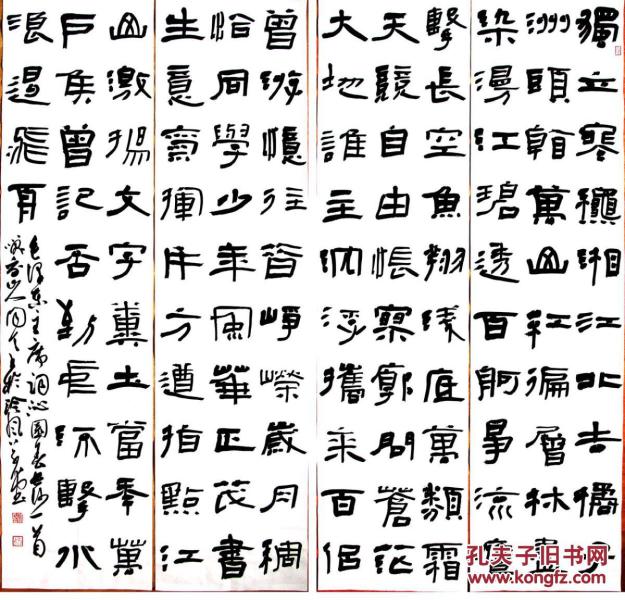 獨立寒龝湘江北去橘子
洲頭看萬山紅徧層林盡
染漫江碧透百舸爭流鷹
擊長空魚翔淺底萬類霜
天競自由悵寥廓問蒼茫
大地誰主沉浮攜來百侶
曾游憶往昔崢嶸歲月稠
恰同學少年風華正茂書
生意氣揮斥方遒指點江
山激揚文字糞土當年萬
戶侯曾記否到中流擊水
浪遏飛舟
毛澤東主席詞沁園春長沙一首
孔夫子旧书网
www.kongfz.com